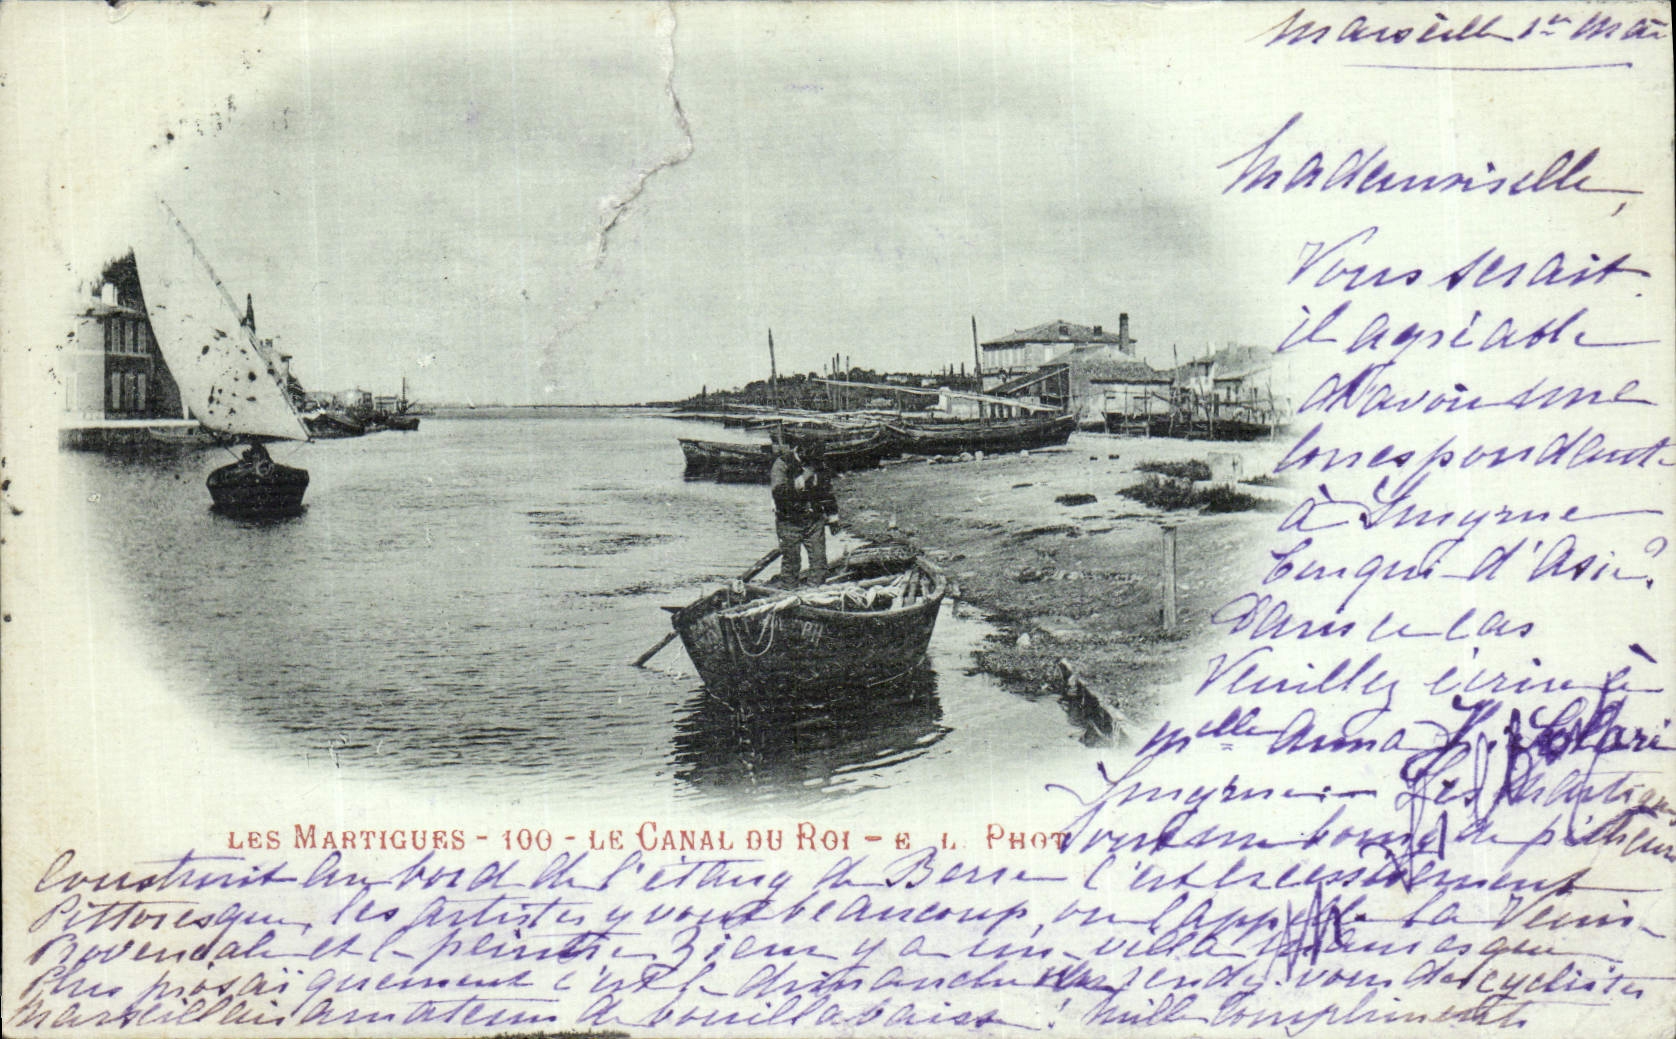 Marseille 1er Mai
Mademoiselle,
Vous serait
il agréable
d'avoir une
correspondante
à Smyrne
Turquie d'Asie?
Dans ce cas
Veuillez écrire à
Melle Anna
Smyrne - Les Martigues
sont un bourg de pêcheurs
construit au bord de l'étang de Berre c'est excessivement
Pittoresque, les artistes y vont beaucoup, on l'appelle la Venise
Provençale et le peintre Ziem y a une villa mauresque
Plus prosaïquement c'est le dimanche rendez-vous des cyclistes
Marseillais amateurs de bouillabaisse! Mille compliments
LES MARTIGUES - 100 - LE CANAL DU ROI - E. L. PHOT
PH